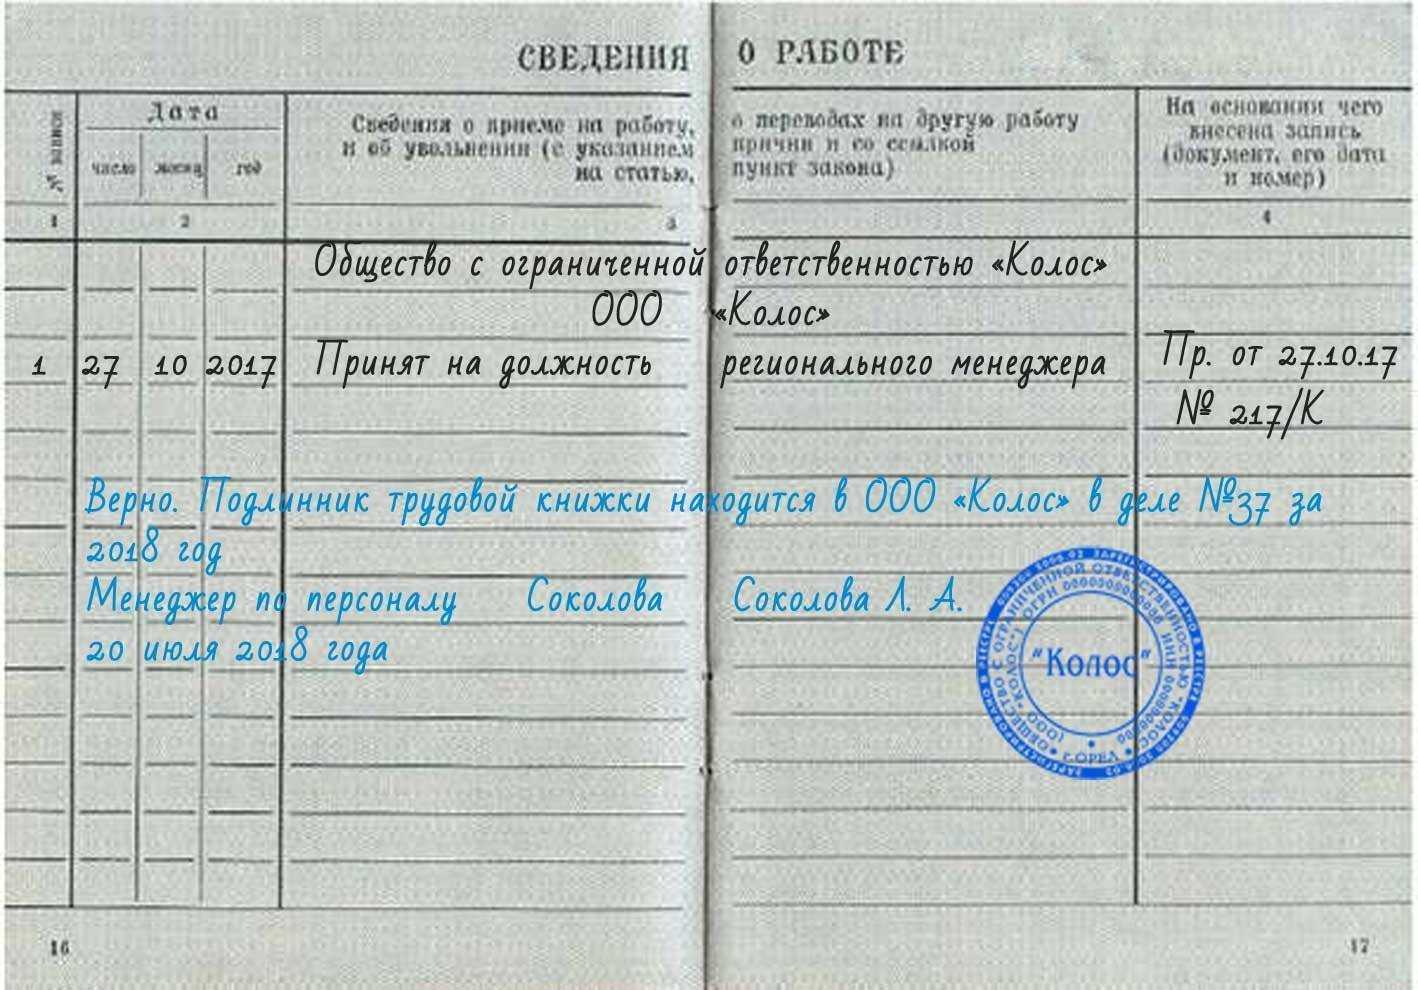 СВЕДЕНИЯ О РАБОТЕ
№ записи
Дата
число месяц год
Сведения о приеме на работу, о переводах на другую работу
и об увольнении (с указанием причин и со ссылкой
на статью, пункт закона)
На основании чего
внесена запись
(документ, его дата
и номер)
1 2 3 4
Общество с ограниченной ответственностью «Колос»
ООО «Колос»
1 27 10 2017 Принят на должность регионального менеджера Пр. от 27.10.17
№ 217/К
Верно. Подлинник трудовой книжки находится в ООО «Колос» в деле №37 за
2018 год
Менеджер по персоналу Соколова Соколова Л. А.
20 июля 2018 года
ЗАРЕГИСТРИРОВАНО В РЕЕСТРЕ
ОБЩЕСТВО С ОГРАНИЧЕННОЙ ОТВЕТСТВЕННОСТЬЮ "КОЛОС"
(ООО "КОЛОС") ОГРН 0000000000000 ИНН 0000000000
"Колос"
г.ОРЕЛ
16 17